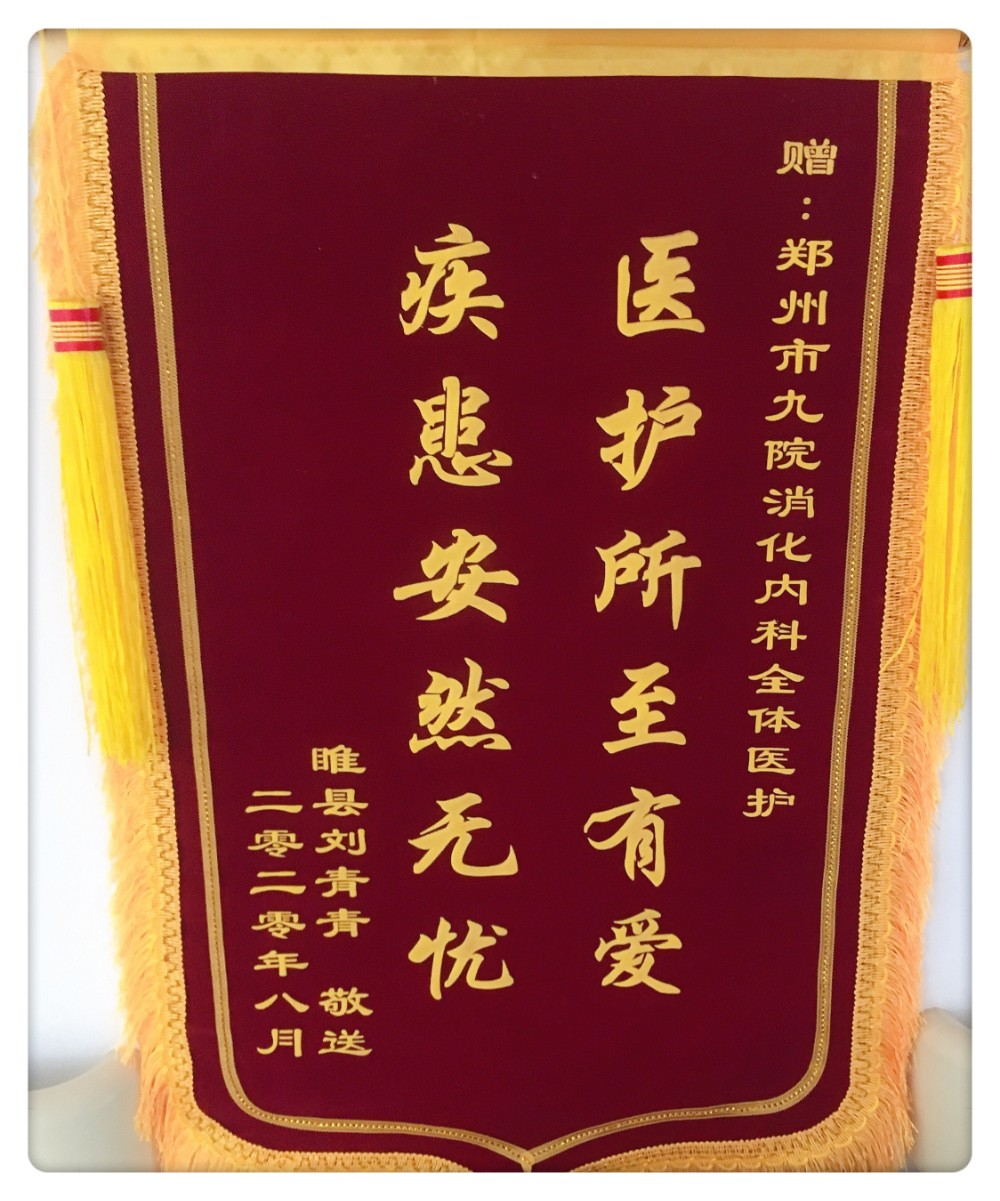 赠：郑州市九院消化内科全体医护
医护所至有爱
疾患安然无忧
睢县刘青青 敬送
二零二零年八月